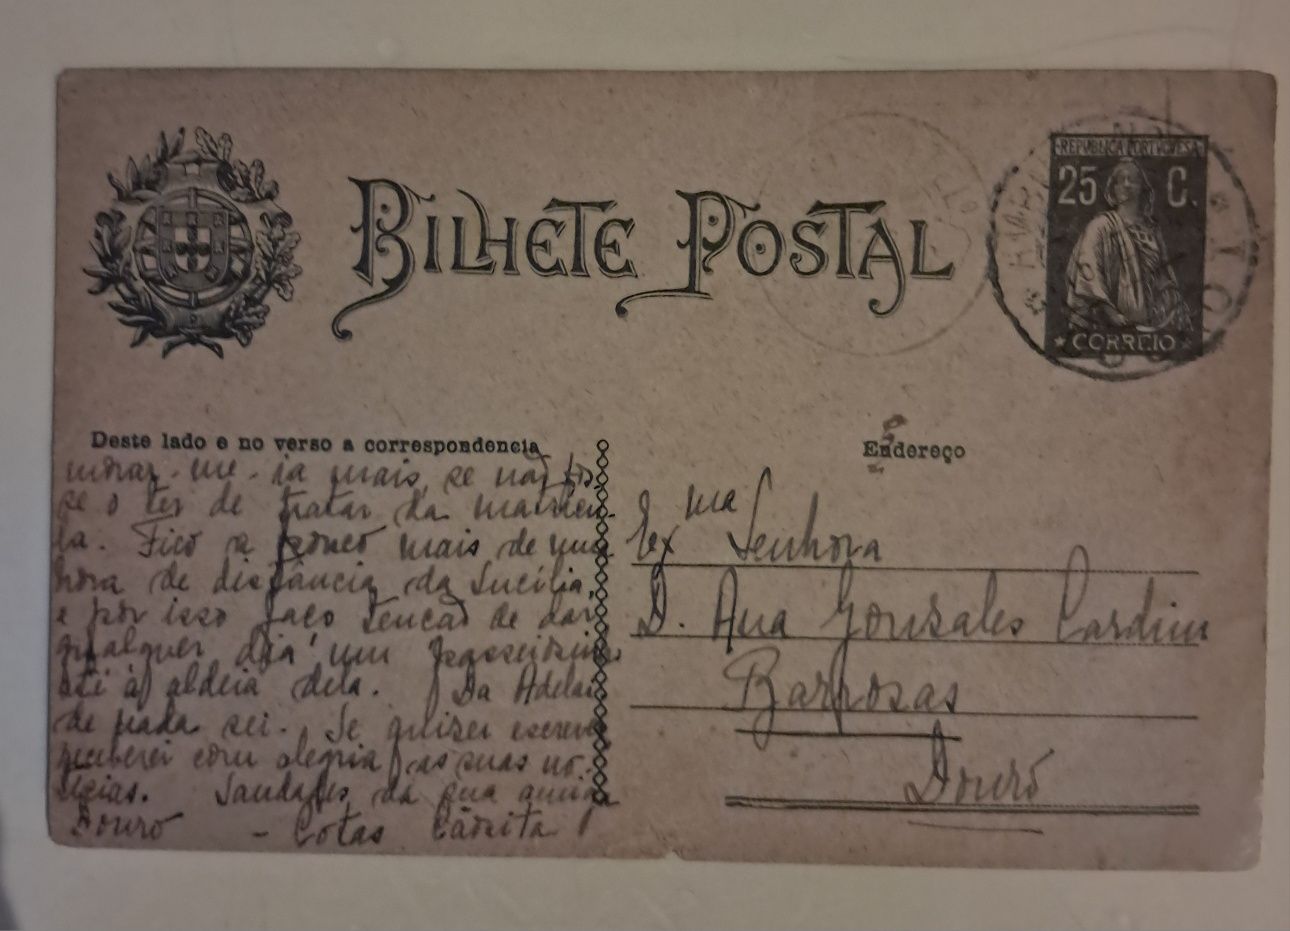 BILHETE POSTAL
REPUBLICA PORTUGUESA
25 C.
CORREIO
Deste lado e no verso a correspondencia
Endereço
morar-me-ia mais, se não fos-
se o ter de tratar da matricu-
la. Fico a pouco mais de uma
hora de distância da Lucília,
e por isso faço tenção de dar
qualquer dia um passeiozinho
até à aldeia dela. Da Adelai-
de nada sei. Se quizer escrever
receberei com alegria as suas no-
tícias. Saudades da sua amiga
Douro - Cotas
Exma Senhora
D. Ana Gonsales Cardim
Barrosas
Douro